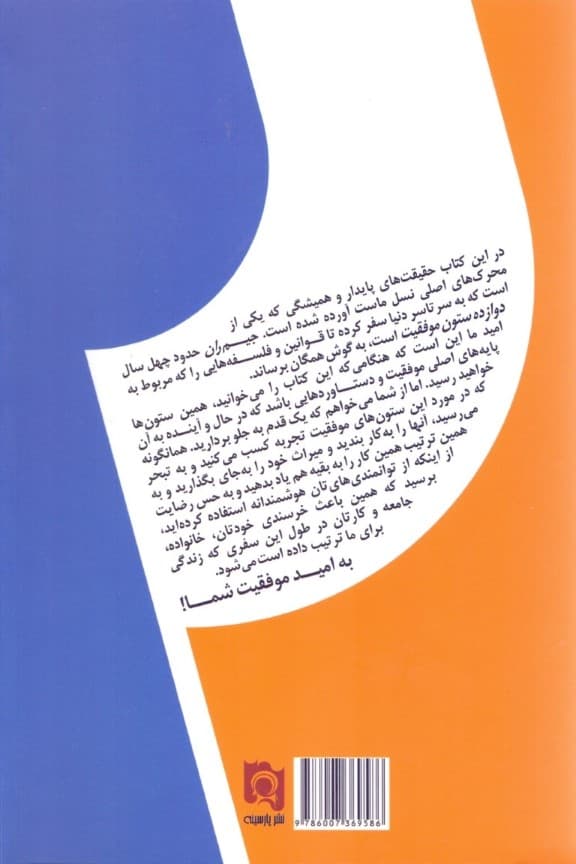 در این کتاب حقیقت‌های پایدار و همیشگی که یکی از
محرک‌های اصلی نسل ماست آورده شده است. جیـم ران حدود چهل سال
است که به سر تاسر دنیا سفر کرده تا قوانین و فلسفه‌هایی را که مربوط به
دوازده ستون موفقیت است، به گوش همگان برساند.
امید ما این است که هنگامی‌که این کتاب را می‌خوانید، همین ستون‌ها
پایه‌های اصلی موفقیت و دستاوردهایی باشد که در حال و آینده به آن
خواهید رسید. اما از شما می‌خواهم که یک قدم به جلو بردارید. همانگونه
که در مورد این ستون‌های موفقیت تجربه کسب می‌کنید و به تبحر
می‌رسید، آنها را به‌کار بندید و میراث خود را به‌جای بگذارید و به
همین ترتیب همین کار را به بقیه هم یاد بدهید و به حس رضایت
از اینکه از توانمندی‌های‌تان هوشمندانه استفاده کرده‌اید،
برسید که همین باعث خرسندی خودتان، خانواده،
جامعه و کارتان در طول این سفری که زندگی
برای ما ترتیب داده است می‌شود.
به امیـد موفقیت شمـا!
نشر پارسینه
9 786007 369586